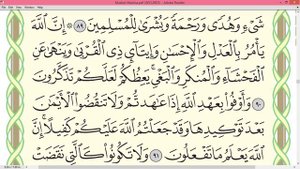 File Edit View Window Help
شَىْءٍ وَهُدًى وَرَحْمَةً وَبُشْرَىٰ لِلْمُسْلِمِينَ ٨٩ ۞ إِنَّ ٱللَّهَ
يَأْمُرُ بِٱلْعَدْلِ وَٱلْإِحْسَٰنِ وَإِيتَآئِ ذِى ٱلْقُرْبَىٰ وَيَنْهَىٰ عَنِ
ٱلْفَحْشَآءِ وَٱلْمُنكَرِ وَٱلْبَغْىِ يَعِظُكُمْ لَعَلَّكُمْ تَذَكَّرُونَ
٩٠ وَأَوْفُوا۟ بِعَهْدِ ٱللَّهِ إِذَا عَٰهَدتُّمْ وَلَا تَنقُضُوا۟ ٱلْأَيْمَٰنَ
بَعْدَ تَوْكِيدِهَا وَقَدْ جَعَلْتُمُ ٱللَّهَ عَلَيْكُمْ كَفِيلًا إِنَّ
ٱللَّهَ يَعْلَمُ مَا تَفْعَلُونَ ٩١ وَلَا تَكُونُوا۟ كَٱلَّتِى نَقَضَتْ